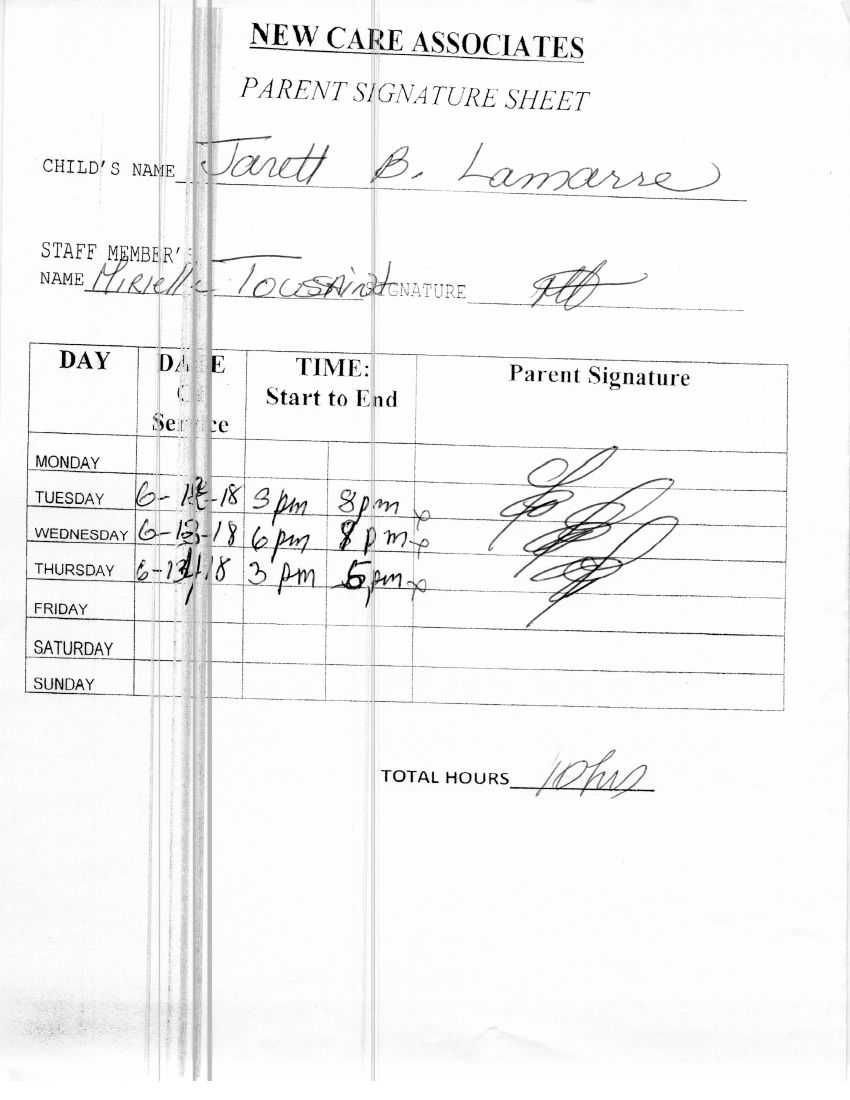 NEW CARE ASSOCIATES
PARENT SIGNATURE SHEET
CHILD'S NAME Jarett B. Lamarre
STAFF MEMBER'
NAME Mirielle Toussaint SIGNATURE
DAY DATE Of Service TIME: Start to End Parent Signature
MONDAY
TUESDAY 6-12-18 3pm 8pm
WEDNESDAY 6-13-18 6pm 8pm
THURSDAY 6-14-18 3pm 5pm
FRIDAY
SATURDAY
SUNDAY
TOTAL HOURS 10hrs